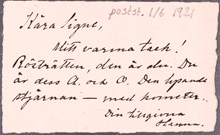 postst. 1/6 1921
Kära Signe,
Mitt varma tack!
Rösträtten, den är du. Du
är dess A. och O. Den lysande
stjärnan — med kometer.
Din tillgivna